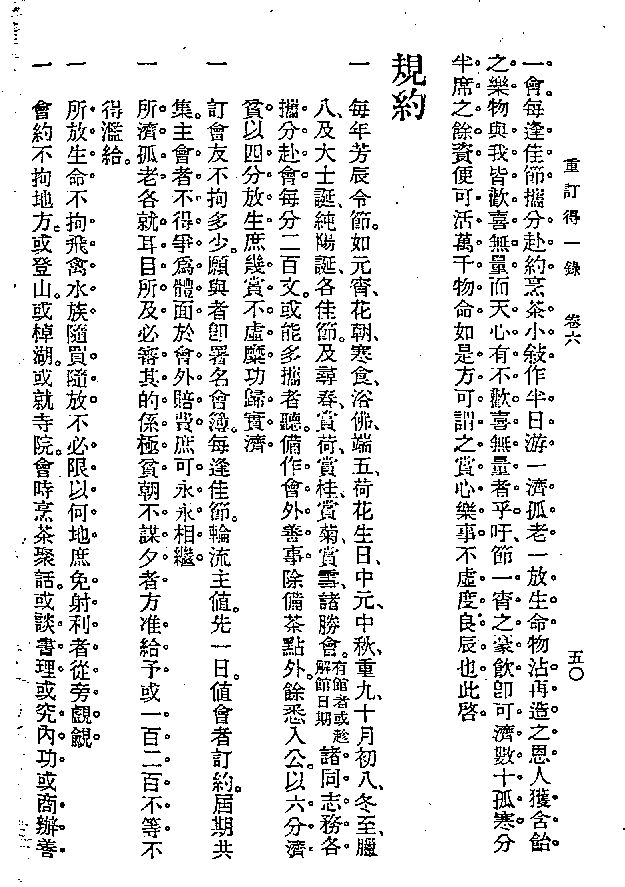 重訂得一錄　卷六　五〇
一會。每逢佳節攜分赴約烹茶小敍作半日游一濟孤老一放生命物沾再造之恩人獲含飴
之樂物與我皆歡喜無量而天心有不歡喜無量者乎吁節一宵之豪飲卽可濟數十孤寒分
半席之餘資便可活萬千物命如是方可謂之賞心樂事不虛度良辰也此啓。
規約
一　每年芳辰令節。如元宵、花朝、寒食、浴佛、端五、荷花生日、中元、中秋、重九、十月初八、冬至、臘
八、及大士誕、純陽誕、各佳節。及尋春、賞荷、賞桂、賞菊、賞雪、諸勝會。有館者或趁解節日期諸同志務各
攜分赴會。每分二百文。或能多攜者聽。備作會外善事。除備茶點外。餘悉入公。以六分濟
貧以四分放生庶幾賞不虛糜功歸實濟
一　訂會友不拘多少。願與者卽署名會簿。每逢佳節。輪流主值。先一日。值會者訂約。屆期共
集。主會者不得爭爲體面於會外賠費庶可永永相繼
一　所濟孤老各就耳目所及必審其的係極貧朝不謀夕者方准給予或一百二百不等不
得濫給。
一　所放生命不拘飛禽水族隨買隨放不必限以何地庶免射利者從旁覬覦
一　會約不拘地方。或登山。或棹湖。或就寺院。會時烹茶聚話。或談書理或究內功或商辦善